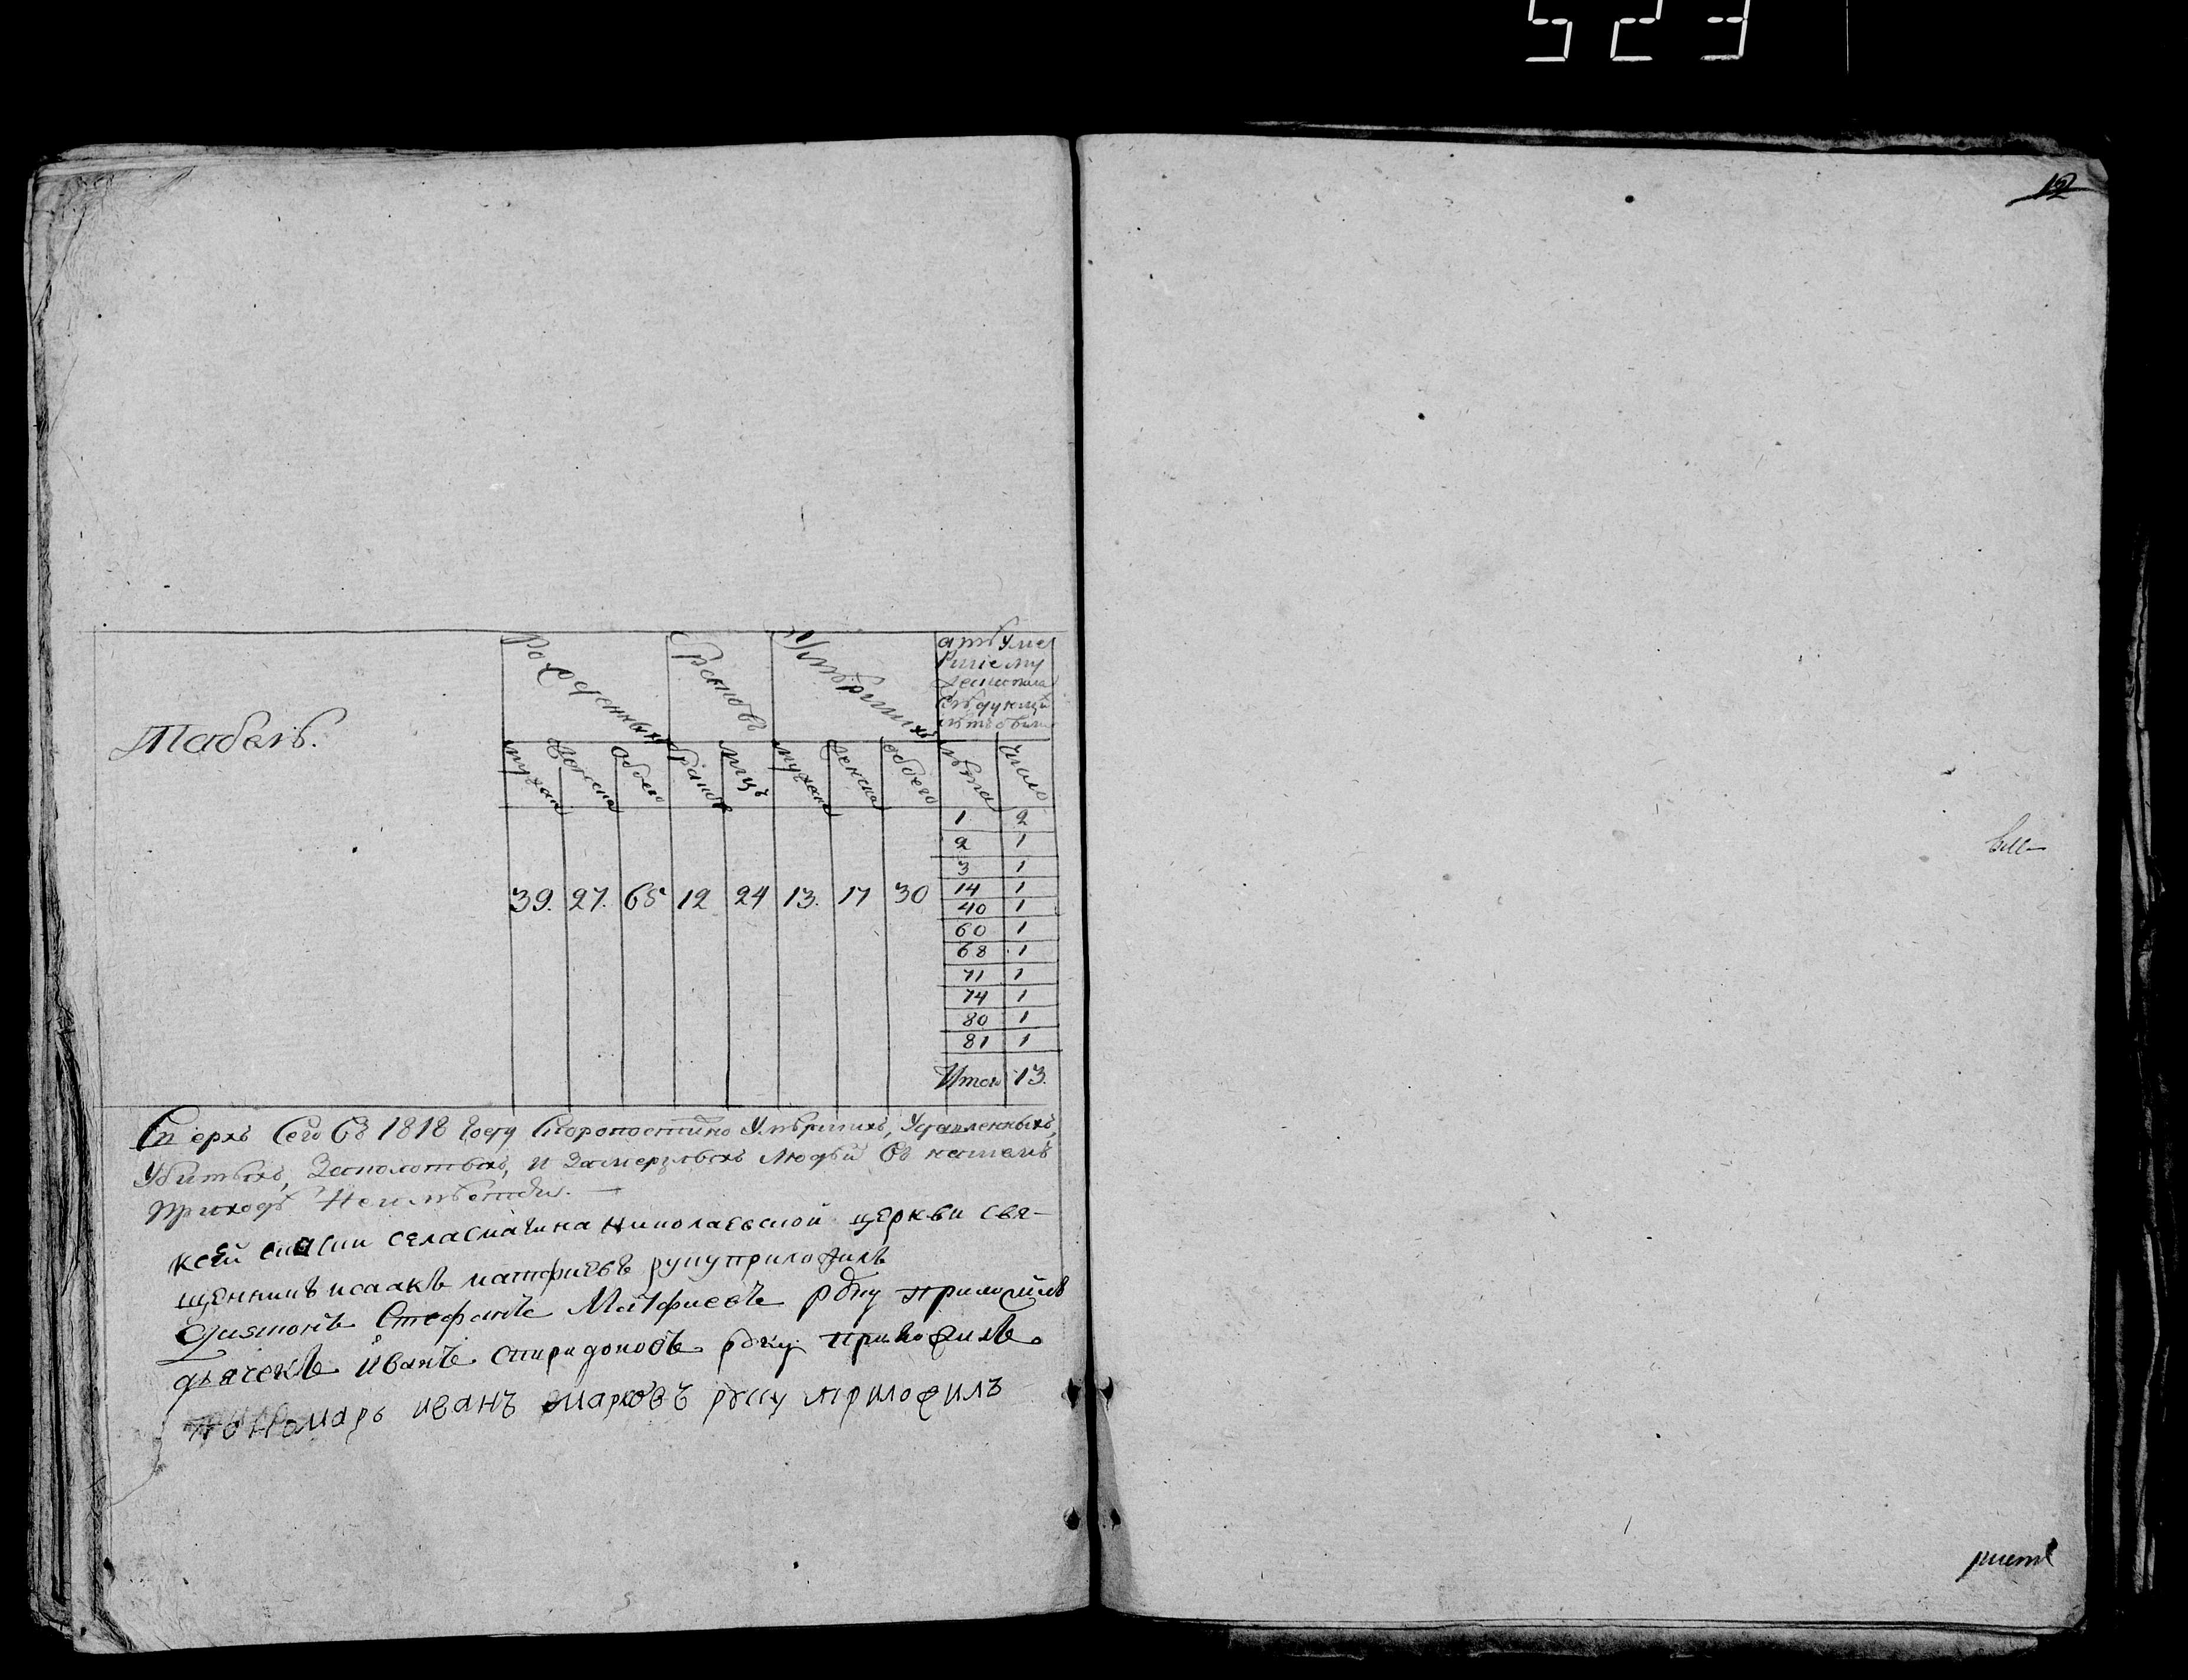 523
12
Табель.
Рожденныхъ
Браковъ
Умершихъ
Мужска
Женска
Обоего
Браков
Лицъ
Мужска
Женска
Обоего
Лѣта
Число
39. 27. 65 12 24 13. 17 30
1 2
2 1
3 1
14 1
40 1
60 1
68 1
71 1
74 1
80 1
81 1
Итого 13.
Сверхъ Сего Въ 1818 Году Скоропостижно Умершихъ, Удавленныхъ,
Убитыхъ, Заколотыхъ, и Замерзлыхъ людей Въ нашемъ
Приходѣ Неимѣется.
Ксей села николаевской церкви свя-
щенникъ исаакъ матфиевъ руку приложилъ
Диаконъ Стефанъ Матфиевъ руку приложилъ
дьячекъ иванъ спиридоновъ руку приложилъ
пономарь иванъ марковъ руку приложилъ